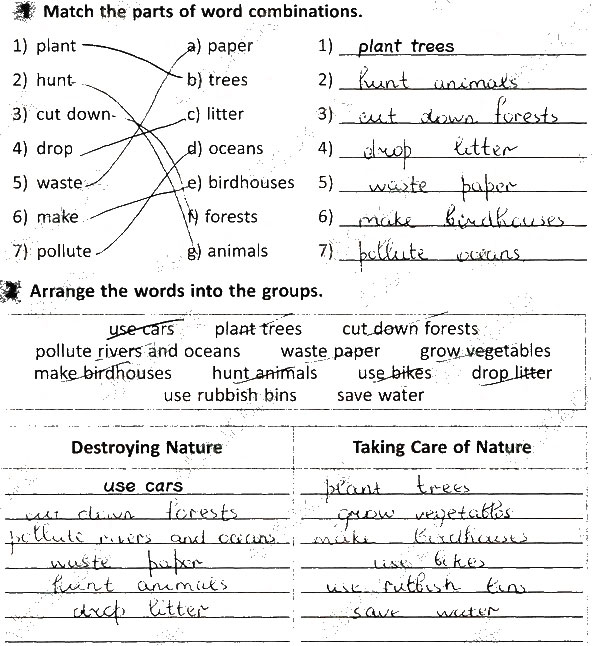 1 Match the parts of word combinations.
1) plant a) paper 1) plant trees
2) hunt b) trees 2) hunt animals
3) cut down c) litter 3) cut down forests
4) drop d) oceans 4) drop litter
5) waste e) birdhouses 5) waste paper
6) make f) forests 6) make birdhouses
7) pollute g) animals 7) pollute oceans
2 Arrange the words into the groups.
use cars plant trees cut down forests
pollute rivers and oceans waste paper grow vegetables
make birdhouses hunt animals use bikes drop litter
use rubbish bins save water
Destroying Nature Taking Care of Nature
use cars plant trees
cut down forests grow vegetables
pollute rivers and oceans make birdhouses
waste paper use bikes
hunt animals use rubbish bins
drop litter save water